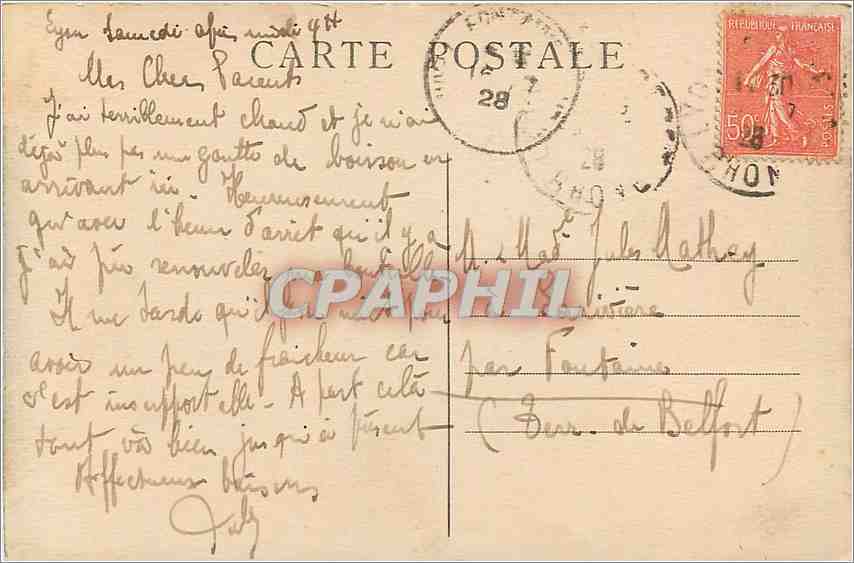 Lyon Samedi après midi 4H
CARTE POSTALE
Mes Chers Parents
J'ai terriblement chaud et je n'ai
déjà plus pas une goutte de boisson en
arrivant ici. Heureusement
qu'avec l'heure d'arrêt qu'il y a
j'ai pu renouveler ma bouteille
Il me tarde qu'il nuit pour
avoir un peu de fraicheur car
c'est insupportable - A part celà
tout va bien jusqu'à présent
Affectueux baisers
M. & Made Jules Mathey
Larivière
par Fontaine
(Terr. de Belfort)
REPUBLIQUE FRANÇAISE
50c
POSTES
28
28
28
RHONE
CPAPHIL